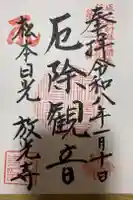 奉拝 令和八年一月十日
厄除観音
松本日光 放光寺